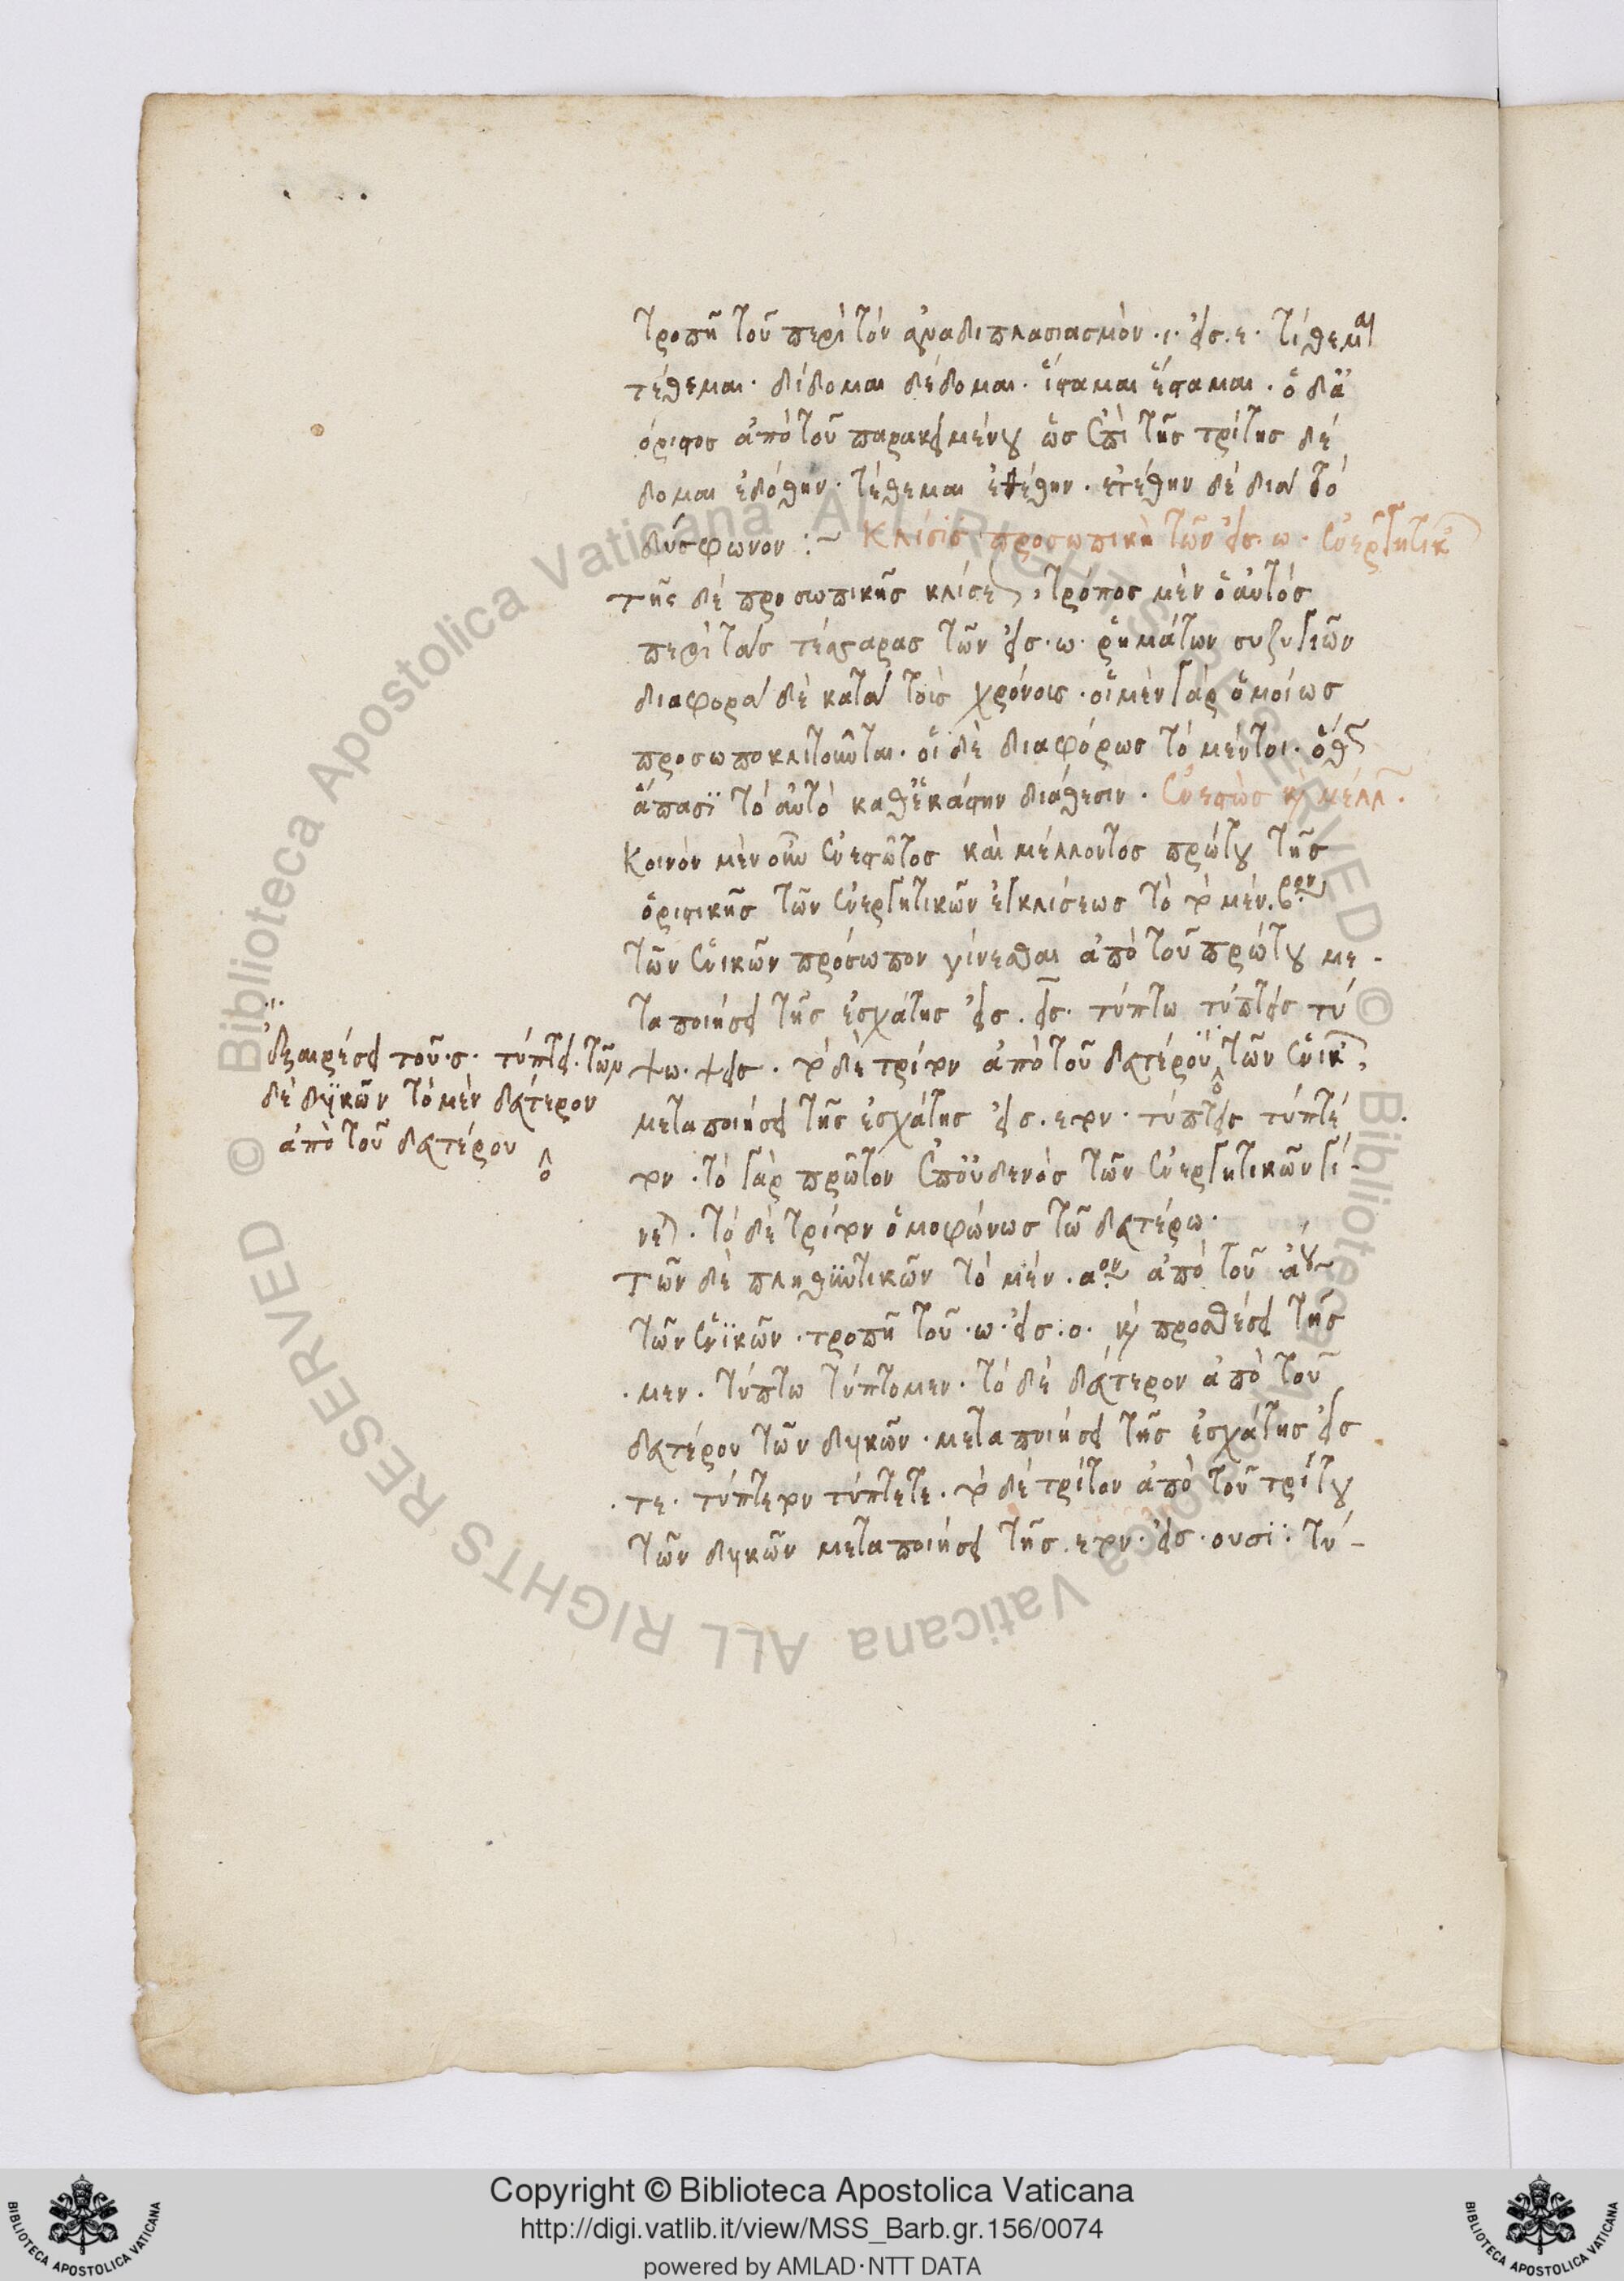 τροπῆ τοῦ περὶ τὸν ἀναδιπλασιασμὸν ·ι· εἰς ·ε· τίθεμαι
τέθεμαι· δίδομαι δέδομαι· ἵσταμαι ἕσταμαι· ὁ δὲ
ἀόριστος ἀπὸ τοῦ παρακειμένου ὡς ἐπὶ τῆς τρίτης δέ
δομαι ἐδόθην· τέθεμαι ἐθέθην· ἐτέθην δὲ διὰ τὸ
δύσφωνον :~ Κλίσις προσωπικὴ τῶν εἰς ω· ἐνεργητικ
τῆς δὲ προσωπικῆς κλίσεως, τρόπος μὲν ὁ αὐτὸς
περὶ τὰς τέσσαρας τῶν εἰς ·ω· ῥημάτων συζυγιῶν
διαφορὰ δὲ κατὰ τοὺς χρόνους· οἱ μὲν γὰρ ὁμοίως
προσωποκλιτοῦνται· οἱ δὲ διαφόρως τὸ μέντοι·
ἅπασι τὸ αὐτὸ καθ' ἑκάστην διάθεσιν· ἐνεστὼς καὶ μέλλ.
Κοινὸν μὲν οὖν ἐνεστῶτος καὶ μέλλοντος πρώτου τῆς
ὁριστικῆς τῶν ἐνεργητικῶν ἐγκλίσεως τὸ μὲν ·βον
τῶν ἑνικῶν πρόσωπον γίνεσθαι ἀπὸ τοῦ πρώτου με-
ταποιήσει τῆς ἐσχάτης εἰς ·εις· τύπτω τύπτεις τύ
ψω· ψεις· τὸ δὲ τρίτον ἀπὸ τοῦ δατέρου τῶν ἑνικῶν
μεταποιήσει τῆς ἐσχάτης εἰς ·ετον· τύπτεις τύπτε
τον· τὸ γὰρ πρῶτον ἐπ' οὐδενὸς τῶν ἐνεργητικῶν γί-
νεται· τὸ δὲ τρίτον ὁμοφώνως τῷ δατέρω·
Τῶν δὲ πληθυντικῶν τὸ μὲν ·αον ἀπὸ τοῦ αου
τῶν ἑνικῶν· τροπῆ τοῦ ·ω· εἰς ·ο· καὶ προσθέσει τῆς
·μεν· τύπτω τύπτομεν· τὸ δὲ δάτερον ἀπὸ τοῦ
δατέρου τῶν δυικῶν· μεταποιήσει τῆς ἐσχάτης εἰς
·τε· τύπτετον τύπτετε· τὸ δὲ τρίτον ἀπὸ τοῦ τρίτου
τῶν δυικῶν μεταποιήσει τῆς ·ετον· εἰς ·ουσι· τύ-
ἐξαιρέσει τοῦ ·σ· τύπτει· τῶν
δὲ δυικῶν τὸ μὲν δάτερον
ἀπὸ τοῦ δατέρου
Copyright © Biblioteca Apostolica Vaticana
http://digi.vatlib.it/view/MSS_Barb.gr.156/0074
powered by AMLAD·NTT DATA